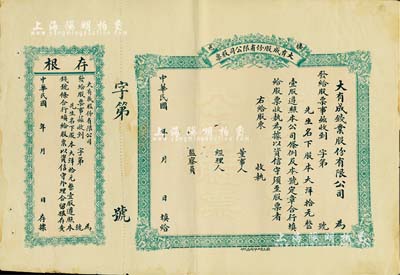 上海泓盛拍卖
大有成股份有限公司股票
大有成錢業股份有限公司 為
發給股票事茲收到 字第 號
先生名下股本大洋拾元整
壹股遵照本公司條例及本號定章合行填
給股票收執為據以資信守須至股票者
右給股東 收執
董事人
經理人
監察員
中華民國 年 月 日 填給
字第 號
存根
大有成錢業股份有限公司 為
發給股票事茲收到 字第 號
先生名下股本大洋拾元整壹股遵照本
合行填給股票以資信守外理合留根存查
中華民國 年 月 日 存根